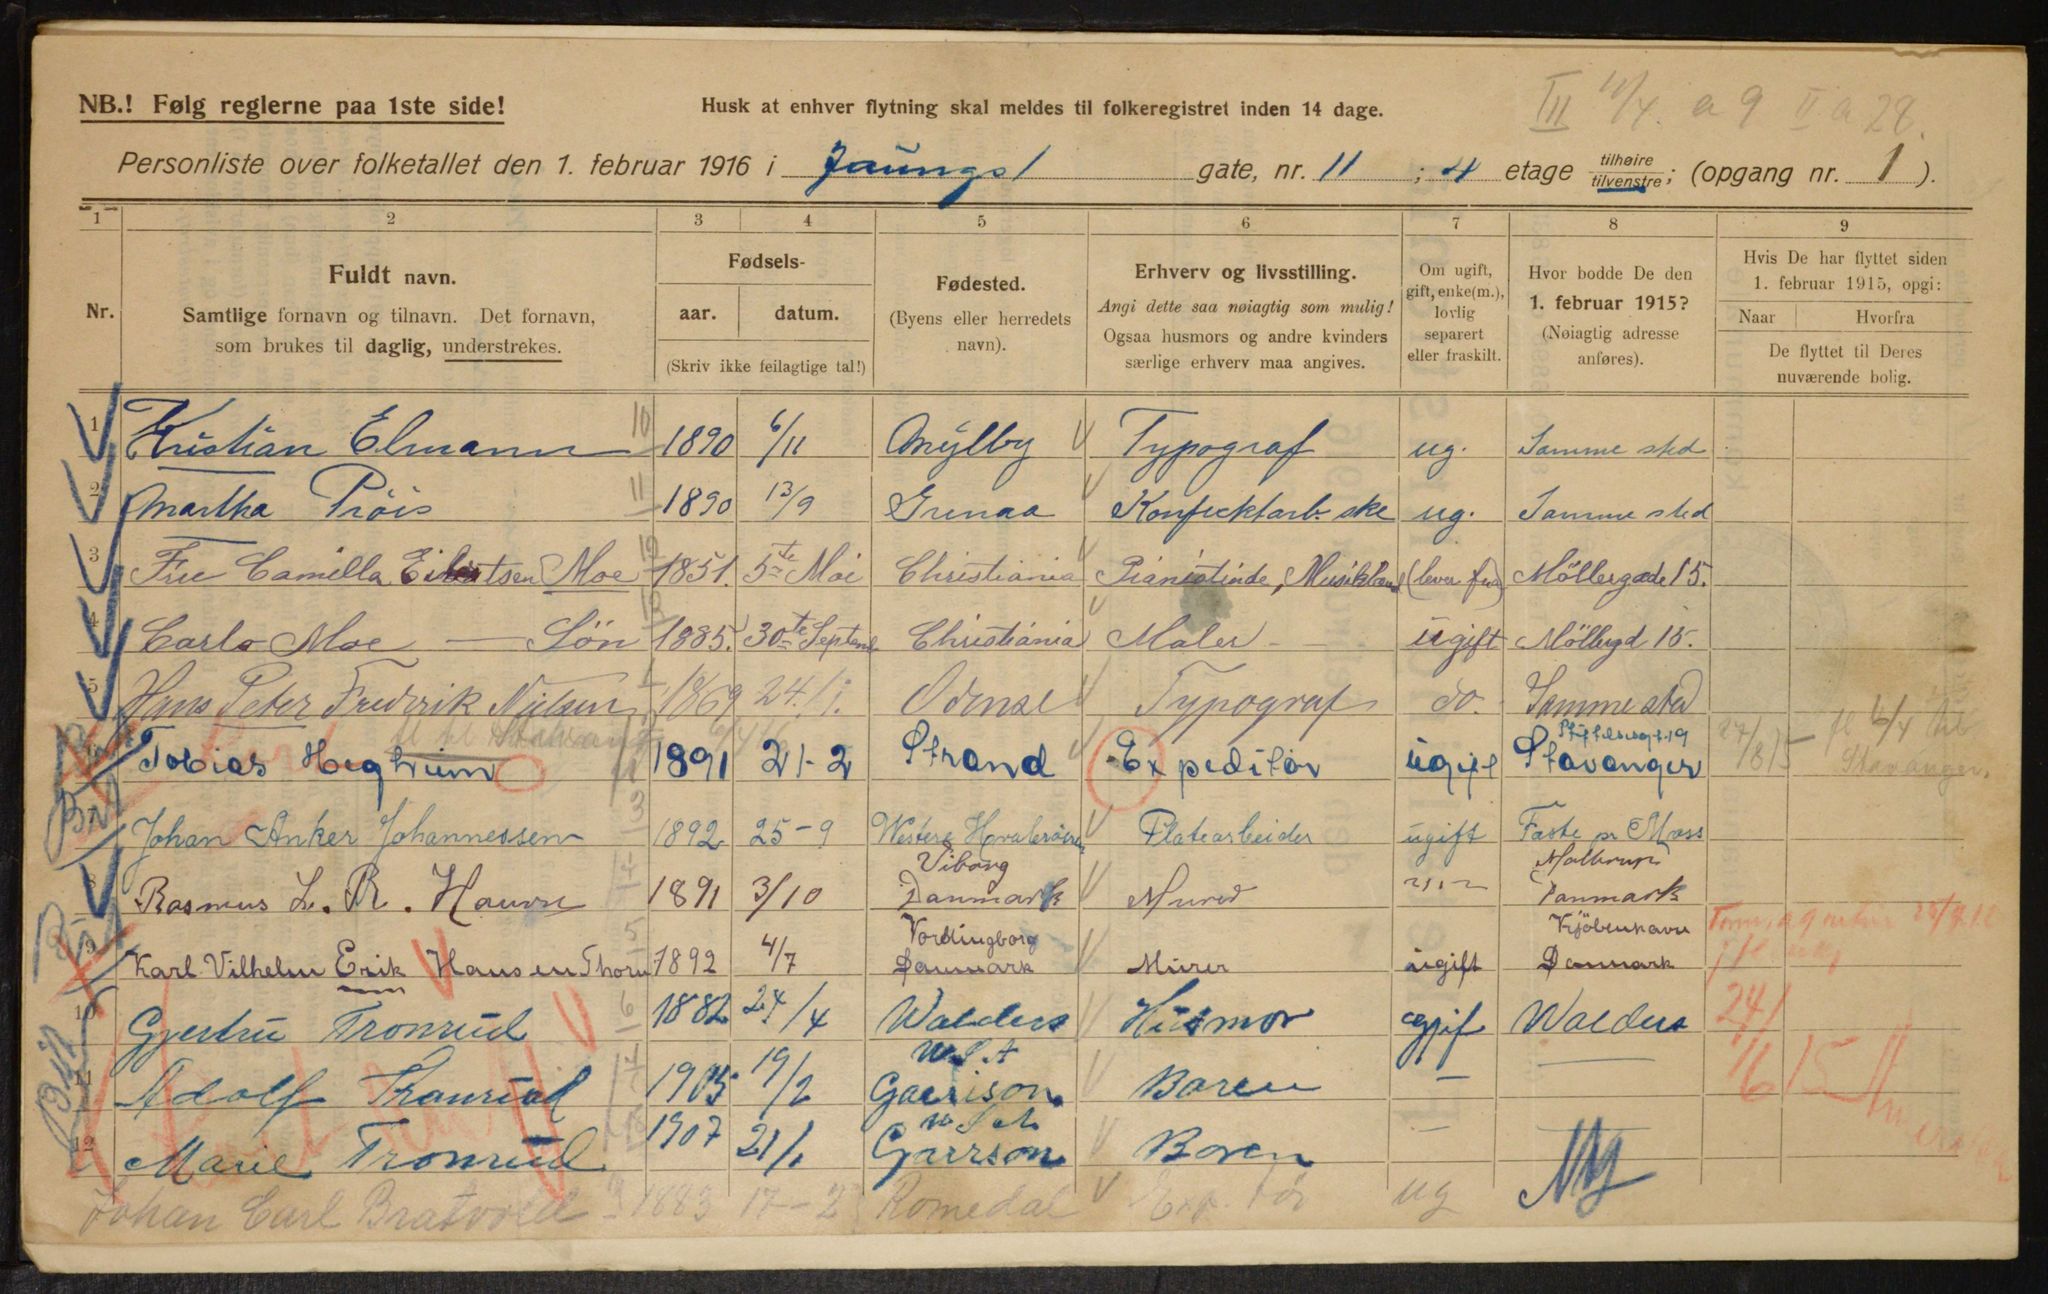 NB.! Følg reglerne paa 1ste side!
Husk at enhver flytning skal meldes til folkeregistret inden 14 dage.
III 11/4. a 9 II a 28.
Personliste over folketallet den 1. februar 1916 i Jaungsl gate, nr. 11 ; 4 etage tilhøire tilvenstre; (opgang nr. 1 ).
1 2 3 4 5 6 7 8 9
Nr.
Fuldt navn.
Samtlige fornavn og tilnavn. Det fornavn,
som brukes til daglig, understrekes.
Fødsels-
aar. datum.
(Skriv ikke feilagtige tal!)
Fødested.
(Byens eller herredets
navn).
Erhverv og livsstilling.
Angi dette saa nøiagtig som mulig!
Ogsaa husmors og andre kvinders
særlige erhverv maa angives.
Om ugift,
gift, enke(m.),
lovlig
separert
eller fraskilt.
Hvor bodde De den
1. februar 1915?
(Nøiagtig adresse
anføres).
Hvis De har flyttet siden
1. februar 1915, opgi:
Naar Hvorfra
De flyttet til Deres
nuværende bolig.
1 Kristian Elmann 10 1890 6/11 Mylby Typograf ug. Samme sted
2 Martha Pröis 11 1890 13/9 Grenaa Konfecktarb-ske ug. Samme sted
3 Frue Camilla Eilertsen Moe 12 1851. 5te Mai Christiania Pianistinde, (lever fra) Möllergade 15.
4 Carlo Moe — Sön 13 1885. 30te Septemb Christiania Maler - ugift Möllergd 15.
5 Hans Peter Fredrik Nielsen 1869 24/1. Odense Typograf do. Samme sted
6 Tobias Hegheim 1891 21-2 Strand Expeditör ugift Stavanger 27/8 15 fl 6/4 til
Stavanger.
7 Johan Anker Johannessen 13 1892 25-9 Westere Hvaleröerne Platearbeider ugift Faste pr Moss
8 Rasmus L. R. Hauru 14 1891 3/10 Viborg Danmark Murer Danmark
9 Karl Vilhelm Erik Hansen Thorn 15 1892 4/7 Vordingborg Danmark Mürer ugift Kjöbenhavn Danmark
10 Gjertru Tronrud 16 1882 24/4 Walders Husmor gift Walders 24/
11 Adolf Tronrud 17 1905 19/2 W.S.A Garrison Baren — 6 15
12 Marie Tronrud 18 1907 21/1 Garrson Boren —
Ny
Johan Carl Bratvold 1883 17-2 Romedal Exp.tör ug